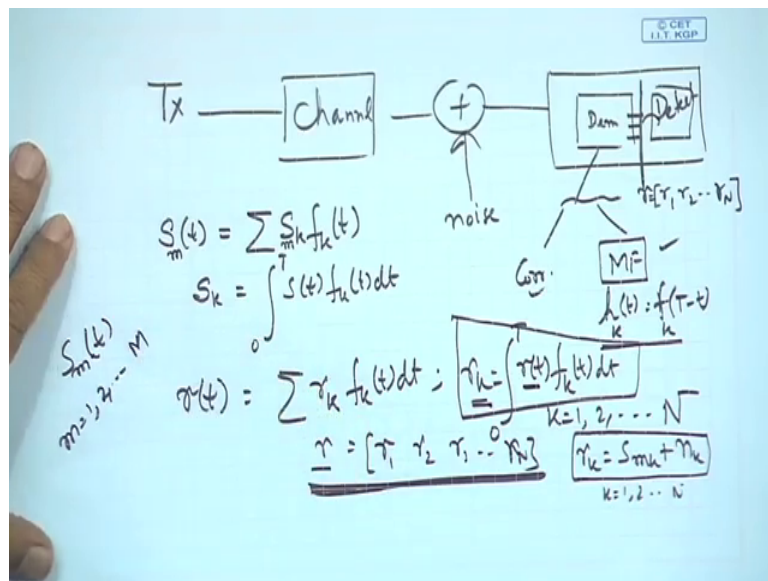 © CET
I.I.T. KGP
Tx Channel + Dem Detect
noise
r=[r₁ r₂ -- r_N]
Sₘ(t) = ∑ Sₘₖ fₖ(t)
Corr. MF ✓
Sₖ = ∫₀ᵀ s(t) fₖ(t) dt
hₖ(t) = fₖ(T-t)
Sₘ(t)
m=1, 2, -- M
r(t) = ∑ rₖ fₖ(t) dt ; rₖ = ∫₀ᵀ r(t) fₖ(t) dt
k=1, 2, --- N
r = [r₁ r₂ r₃ -- r_N] rₖ = Sₘₖ + nₖ
k=1, 2 -- N